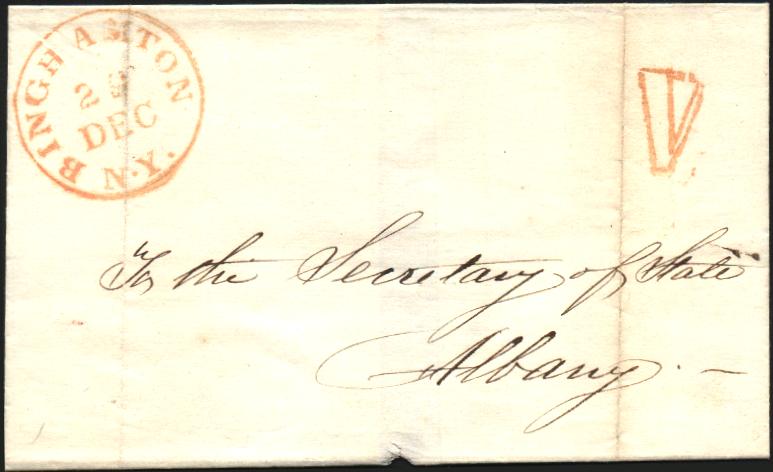 BINGHAMTON
DEC
N.Y.
V
To the Secretary of State
Albany.